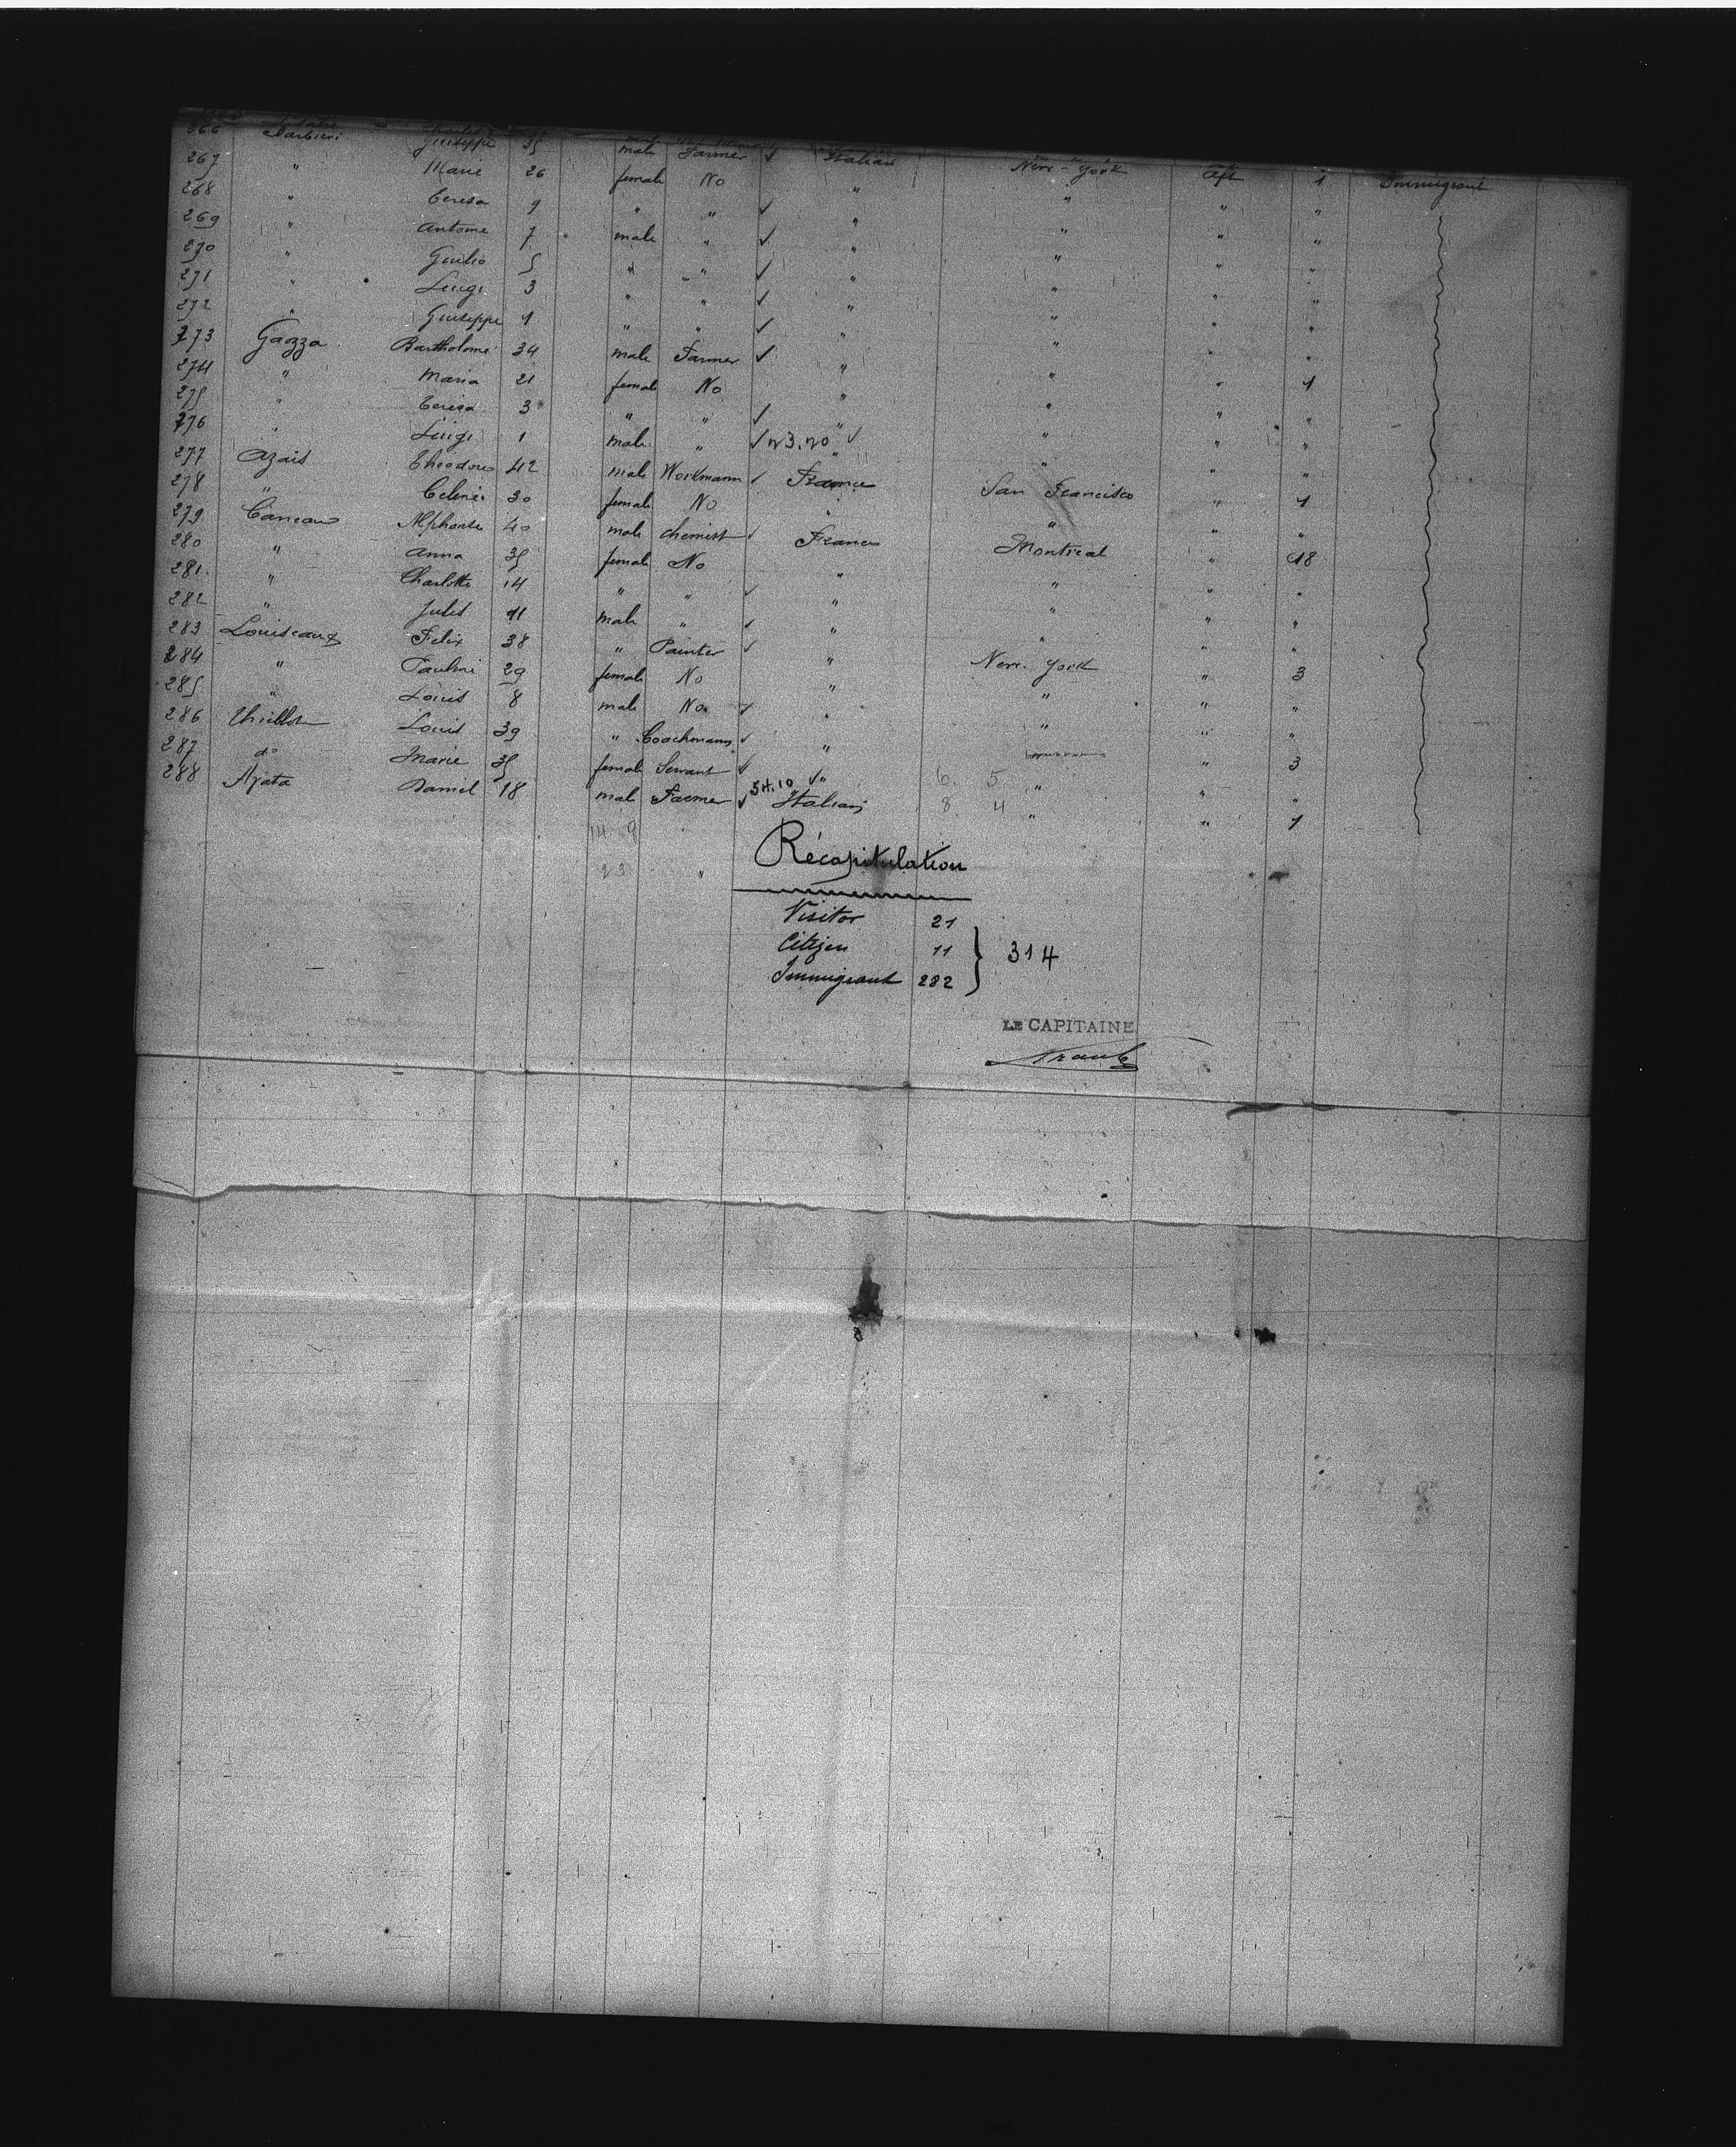 266 Barbieri Giuseppe 35 male Farmer ✓ Italian New-York Aft 1 Immigrant
267 " Marie 26 female No " " " "
268 " Teresa 9 " " ✓ " " " "
269 " Antoine 7 male " ✓ " " " "
270 " Giulio 5 " " ✓ " " " "
271 " Luigi 3 " " ✓ " " " "
272 " Giuseppe 1 " " ✓ " " " "
273 Gazza Bartholome 34 male Farmer ✓ " " " 1
274 " Maria 21 female No " " " "
275 " Teresa 3 " " ✓ " " " "
276 " Luigi 1 male " ✓ 23.20 ✓ " " " "
277 Azais Theodore 42 male Workmann ✓ France San Francisco " 1
278 " Celenie 30 female No " " " "
279 Alphonse 40 male chemist ✓ France Montreal " 18
280 " Anna 35 female No " " " "
281 " Charlotte 14 " " ✓ " " " "
282 " Jules 11 male " ✓ " " " "
283 Louiseaux Felix 38 " Painter ✓ " New-York " 3
284 " Pauline 29 female No " " " "
285 " Louis 8 male No ✓ " " " "
286 Thiellot Louis 39 " Coachmann ✓ " " 3
287 do Marie 35 female Servant ✓ ✓ " 6. 5 " " "
288 Arata Daniel 18 male Farmer ✓ 34.10 Italian 8. 4 " " 1
14 9
23
Récapitulation
Visitor 21
Citizen 11 } 314
Immigrant 282
LE CAPITAINE